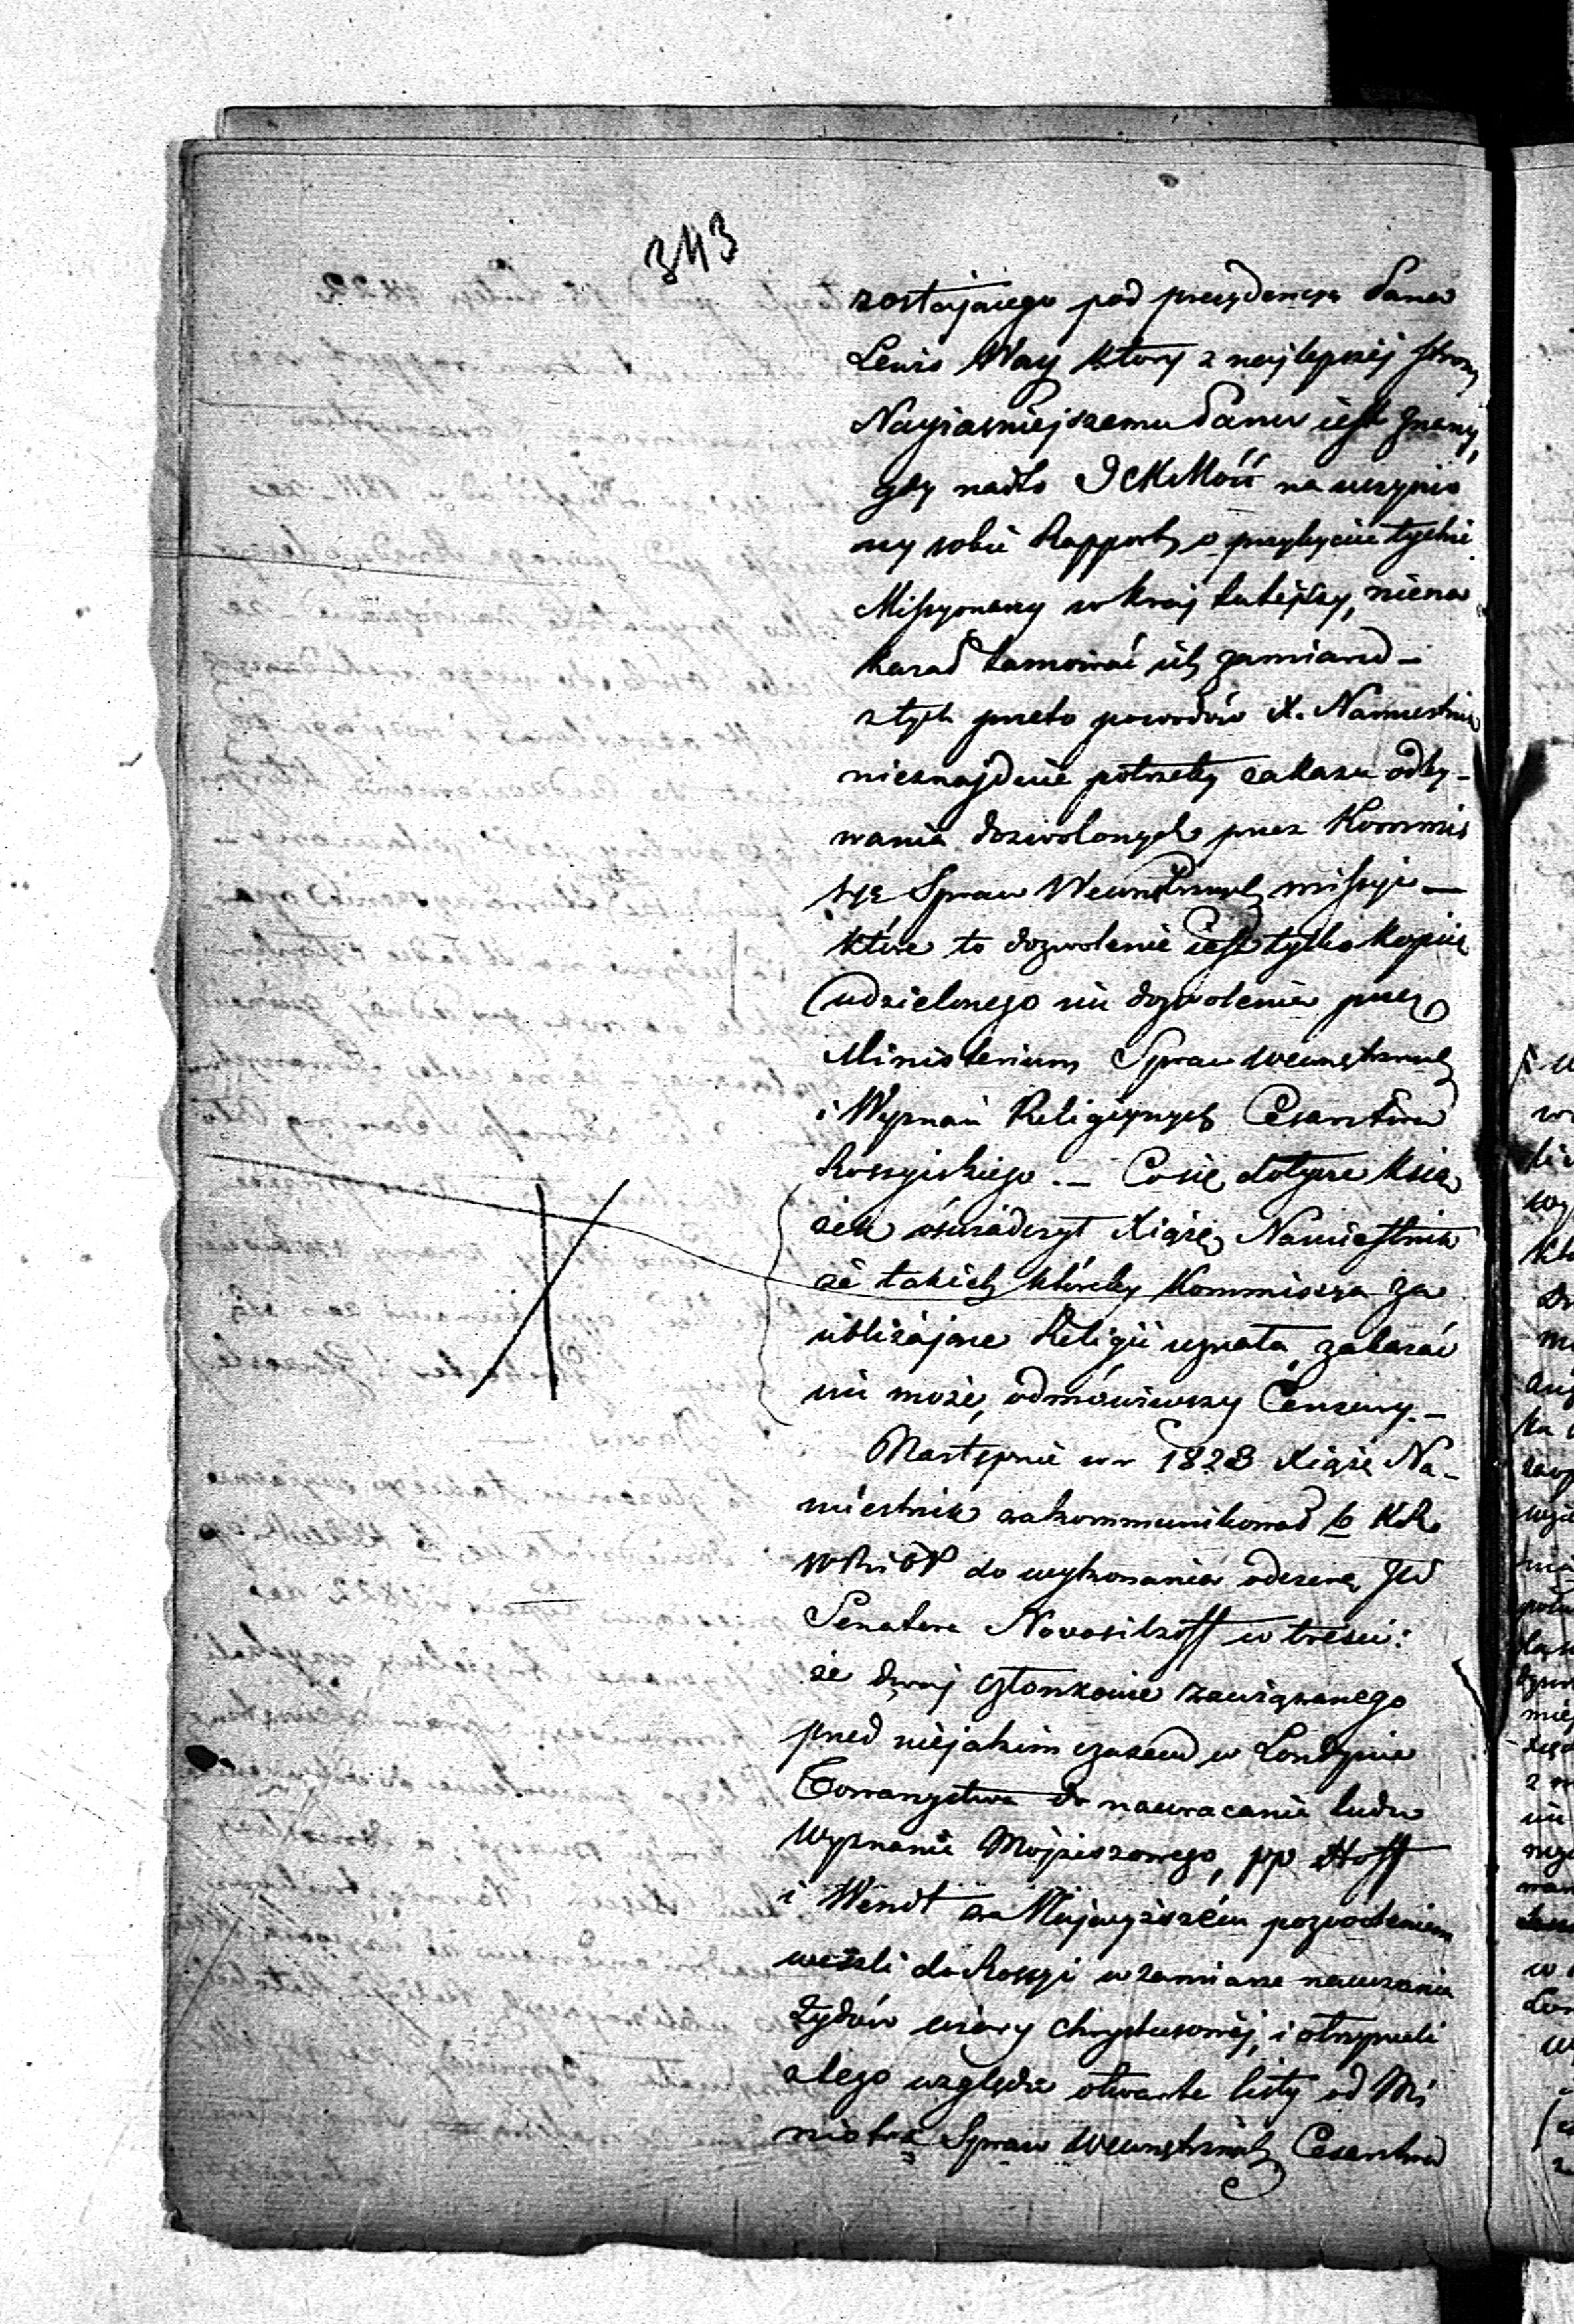 343
zostającego pod prezydencyą Pana
Lewis Way który z najlepszéj strony
Nayiaśniejszemu Panu iest znany,
gdy nadto JCKMość na uczynio
ny sobie Rapport o przybyciu tychże
Missyonarzy w kraj tutejszy, nieroz
kazał tamować ich zamiarów –
z tych przeto powodów X. Namiestnik
nieznajduie potrzeby zakazu odby-
wania dozwolonych przez Kommis
syę Spraw Wewnętrznych missyi —
które to dozwolenie iest tylko kopią
udzielonego im dozwolenia przez
Ministerium Spraw wewnętrznych
i Wyznań Religijnych Cesarstwa
Rossyiskiego. – Co się dotycze Ksią
żek oświadczył Xiążę Namiestnik
że takich któreby Kommissya za
ubliżające Religii uznała, zakazać
im może, odmówiwszy Cenzury. –
Następnie w r 1823 Xiąże Na-
miestnik zakommunikował to KR
WRiOP do wykonania odezwę JW
Senatora Novosiltzoff w treści:
że dwaj członkowie zawiązanego
przed niejakim czasem w Londynie
Towarzystwa do nawracania ludu
wyznania Mojżeszowego, pp Hoff
i Wendt za Najwyższém pozwoleniem
weszli do Rossyi w zamiarze nauczania
Żydów wiary chrystusowéj, i otrzymali
z tego względu otwarte listy od Mi
nistra Spraw wewnętrznych Cesarstwa